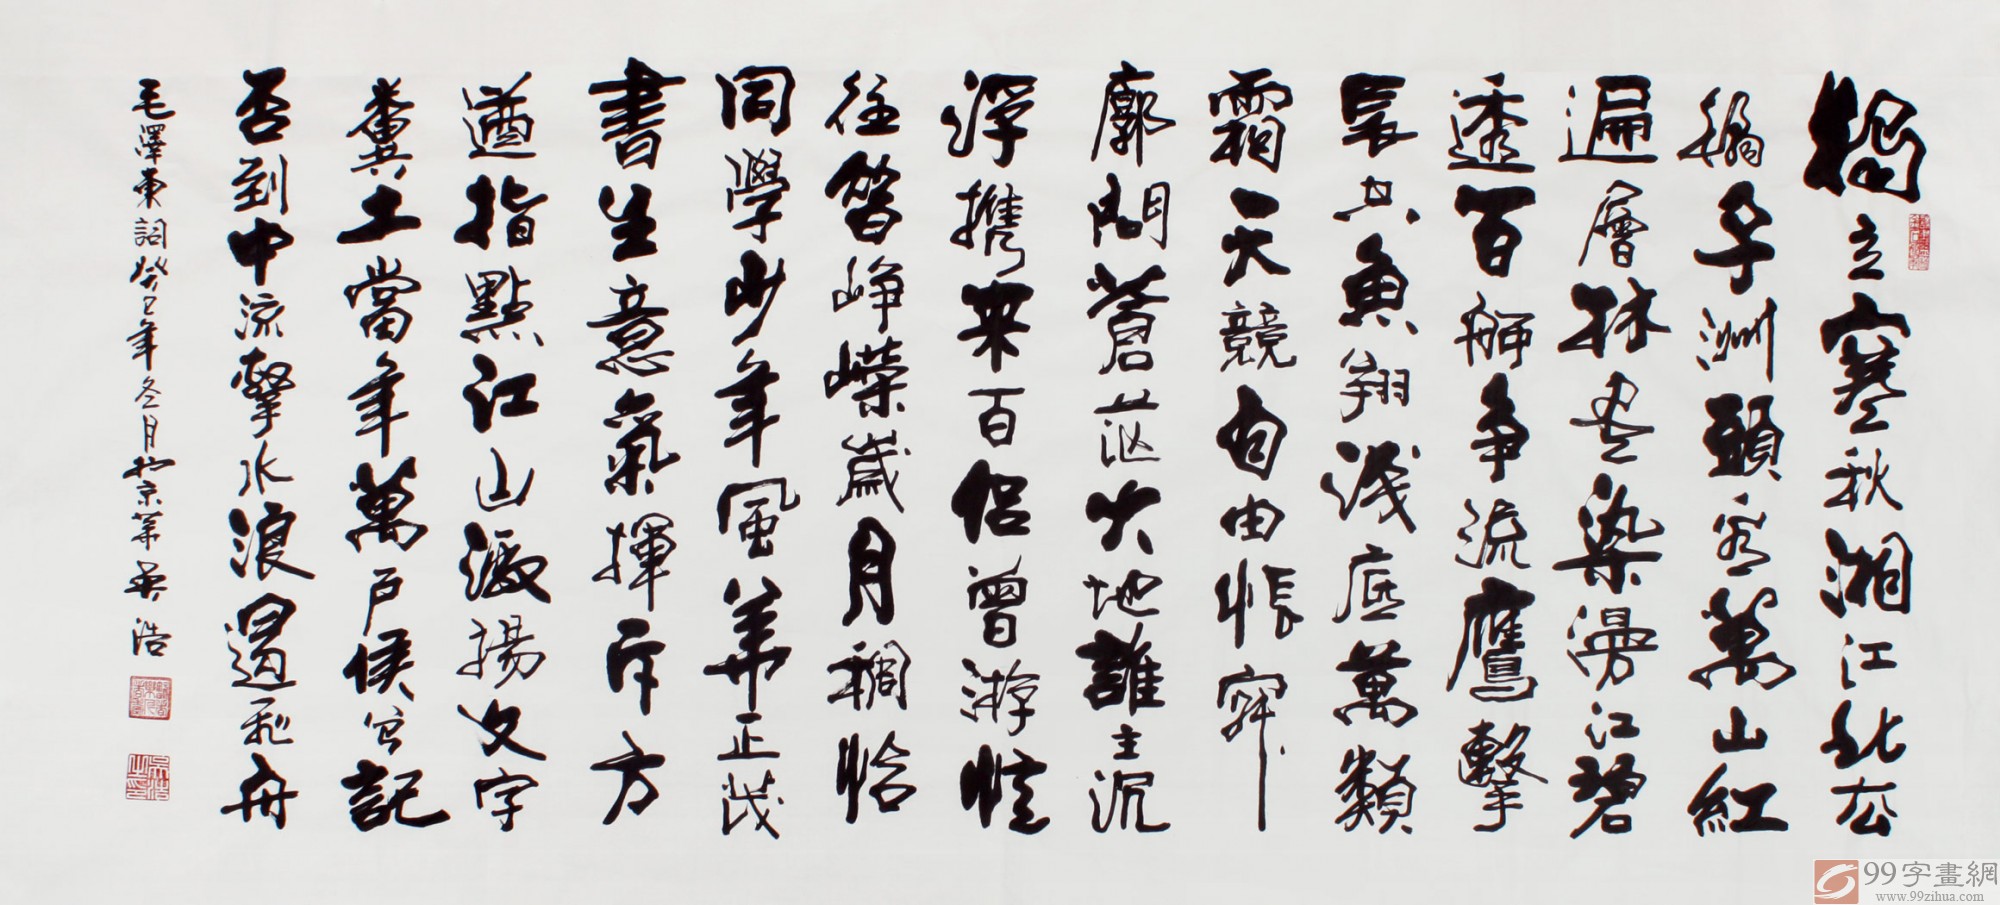 獨立寒秋湘江北去
橘子洲頭看萬山紅
遍層林盡染漫江碧
透百舸争流鷹擊
長空魚翔淺底萬類
霜天競自由悵寥
廓問蒼茫大地誰主沉
浮携來百侣曾游憶
往昔崢嶸歲月稠恰
同學少年風華正茂
書生意氣揮斥方
遒指點江山激揚文字
糞土當年萬户侯曾記
否到中流擊水浪遏飛舟
毛澤東詞癸巳年冬月於京華吴浩
吴浩之印
99字畫網
www.99zihua.com